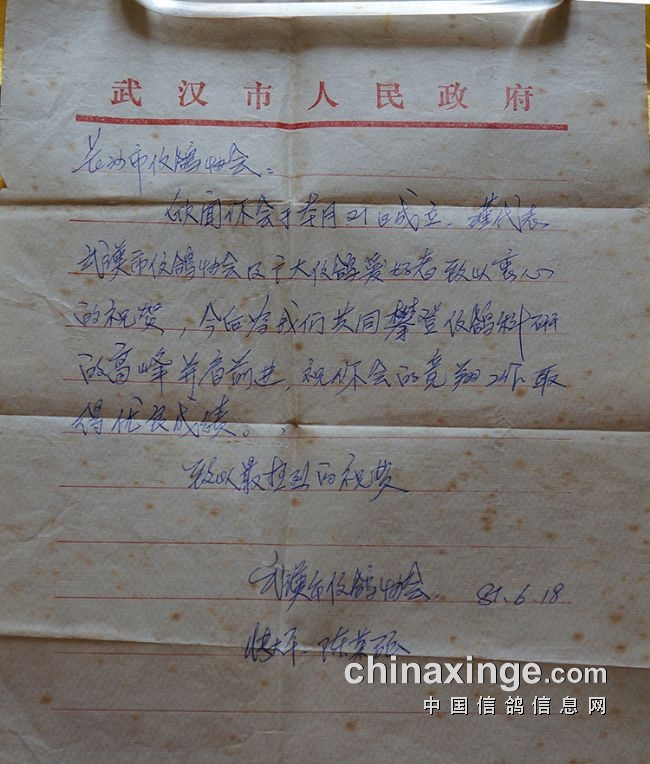 武汉市人民政府
长沙市信鸽协会:
欣闻你会于本月21日成立,谨代表
武漢市信鸽协会及广大信鸽爱好者致以衷心
的祝贺,今后为我们共同攀登信鸽科研
的高峰并肩前进,祝你会的竞翔工作取
得优良成绩。
致以最热烈的祝贺
武漢市信鸽协会. 81.6.18
陈英
chinaxinge.com
中国信鸽信息网